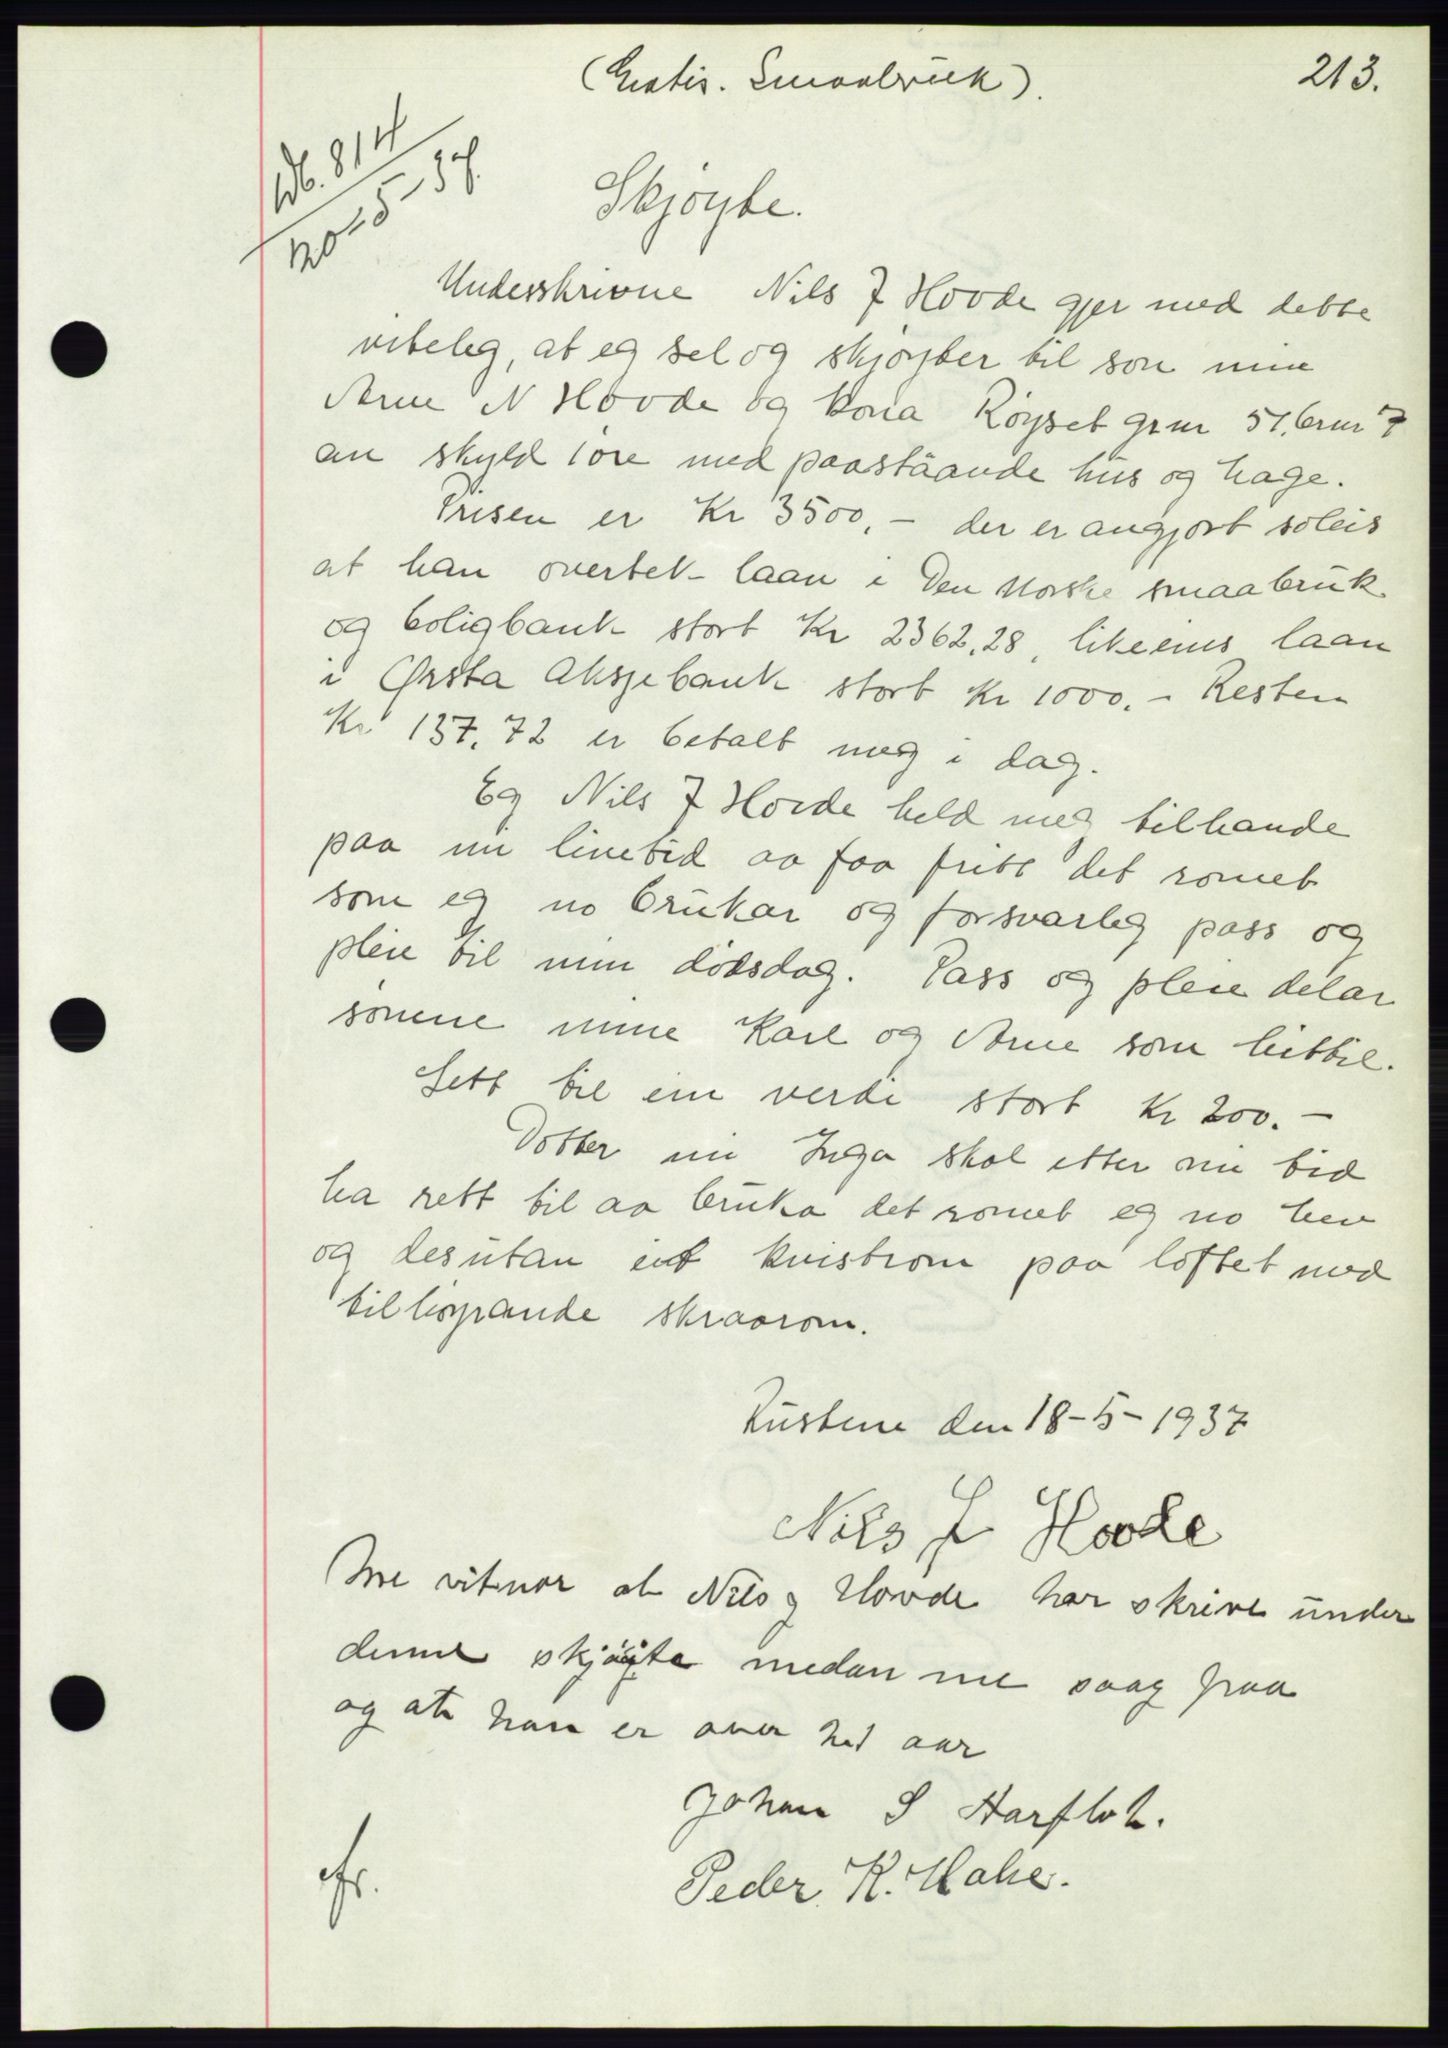 (Gratis. Smaabruk).
213.
Db. 814
20-5-37.
Skjøyte.
Underskrivne Nils J Hovde gjer med dette
viteleg, at eg sel og skjøyter til son min
Arne N Hovde og kona Røyset gnr 51, brnr 7
av skyld 1 øre med paastaaande hus og hage.
Prisen er Kr 3500,- der er avgjort soleis
at han overtek laan i Den Norske smaabruk
og boligbank stort Kr 2362,28, likeeins laan
i Ørsta Aksjebank stort Kr 1000.- Resten
Kr 137,72 er betalt meg i dag.
Eg Nils J Hovde held meg tilhande
paa mi livetid aa faa fritt det romet
som eg no brukar og forsvarleg pass og
pleie til min dødsdag. Pass og pleie delar
sønene mine Karl og Arne som hittil.
Sett til ein verdi stort Kr 200.-
Dotter mi Inga skal etter mi tid
ha rett til aa bruka det romet eg no hev
og desutan eit kvistrom paa loftet med
tilhøyrande skraarom.
den 18-5-1937
Nils J Hovde
Me vitnar at Nils J Hovde har skrive under
denne skjøyte medan me saag paa
og at han er over aar
Johan S Harflot.
Peder K. Hahe.